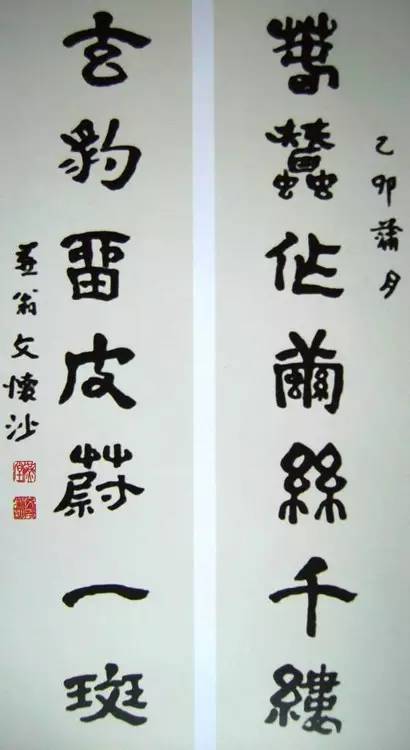 乙卯蒲月
萬蠶作繭絲千縷
玄豹畱皮蔚一斑
燕翁文懷沙